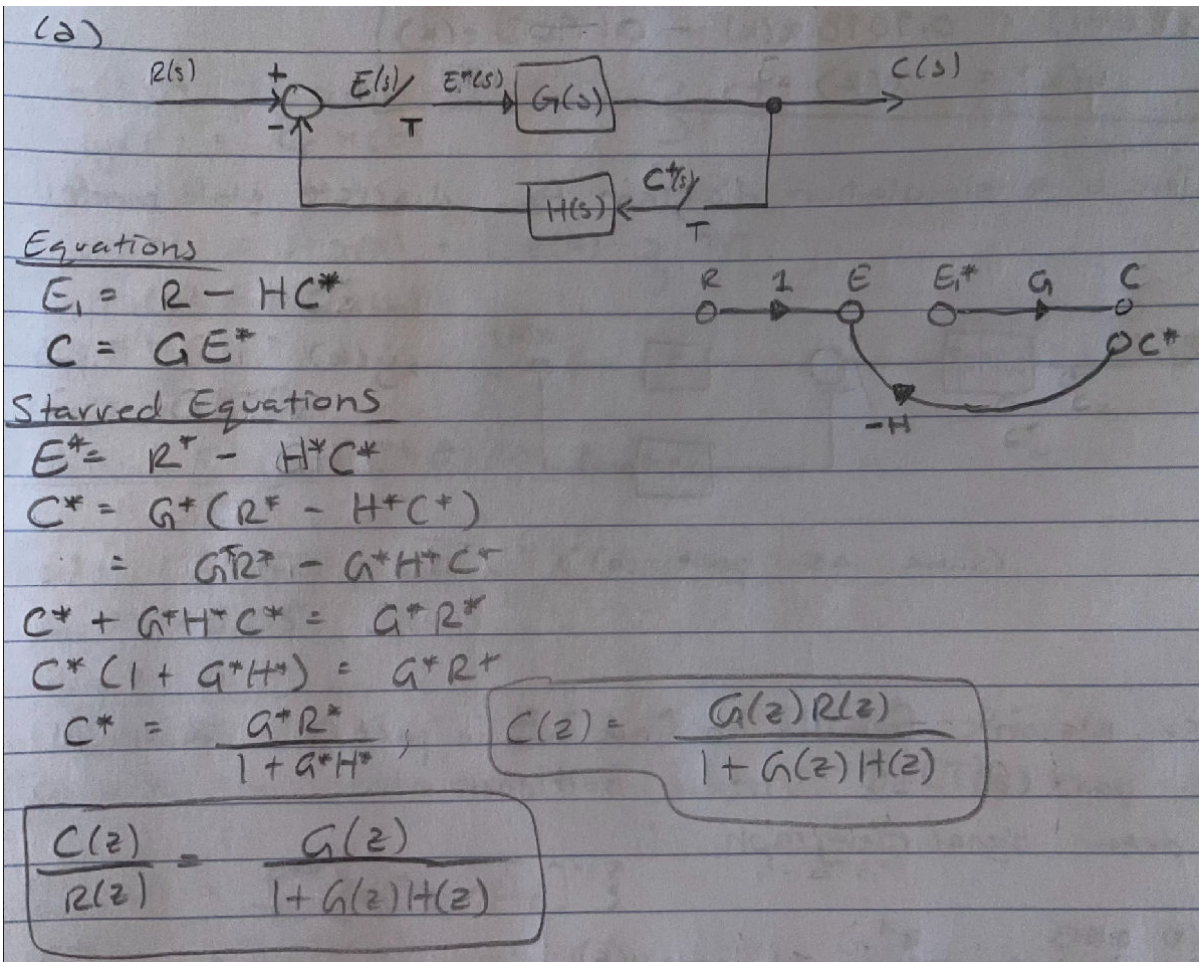 (a)
R(s) + E(s) E*(s) G(s) C(s)
- T
H(s) C*(s)
T
Equations
E₁ = R - HC*
C = GE*
R 1 E E₁* G C
C*
-H
Starred Equations
E* = R* - H*C*
C* = G*(R* - H*C*)
= G*R* - G*H*C*
C* + G*H*C* = G*R*
C*(1 + G*H*) = G*R*
C* = G*R* / 1 + G*H* , C(z) = G(z)R(z) / 1 + G(z)H(z)
C(z) / R(z) = G(z) / 1 + G(z)H(z)